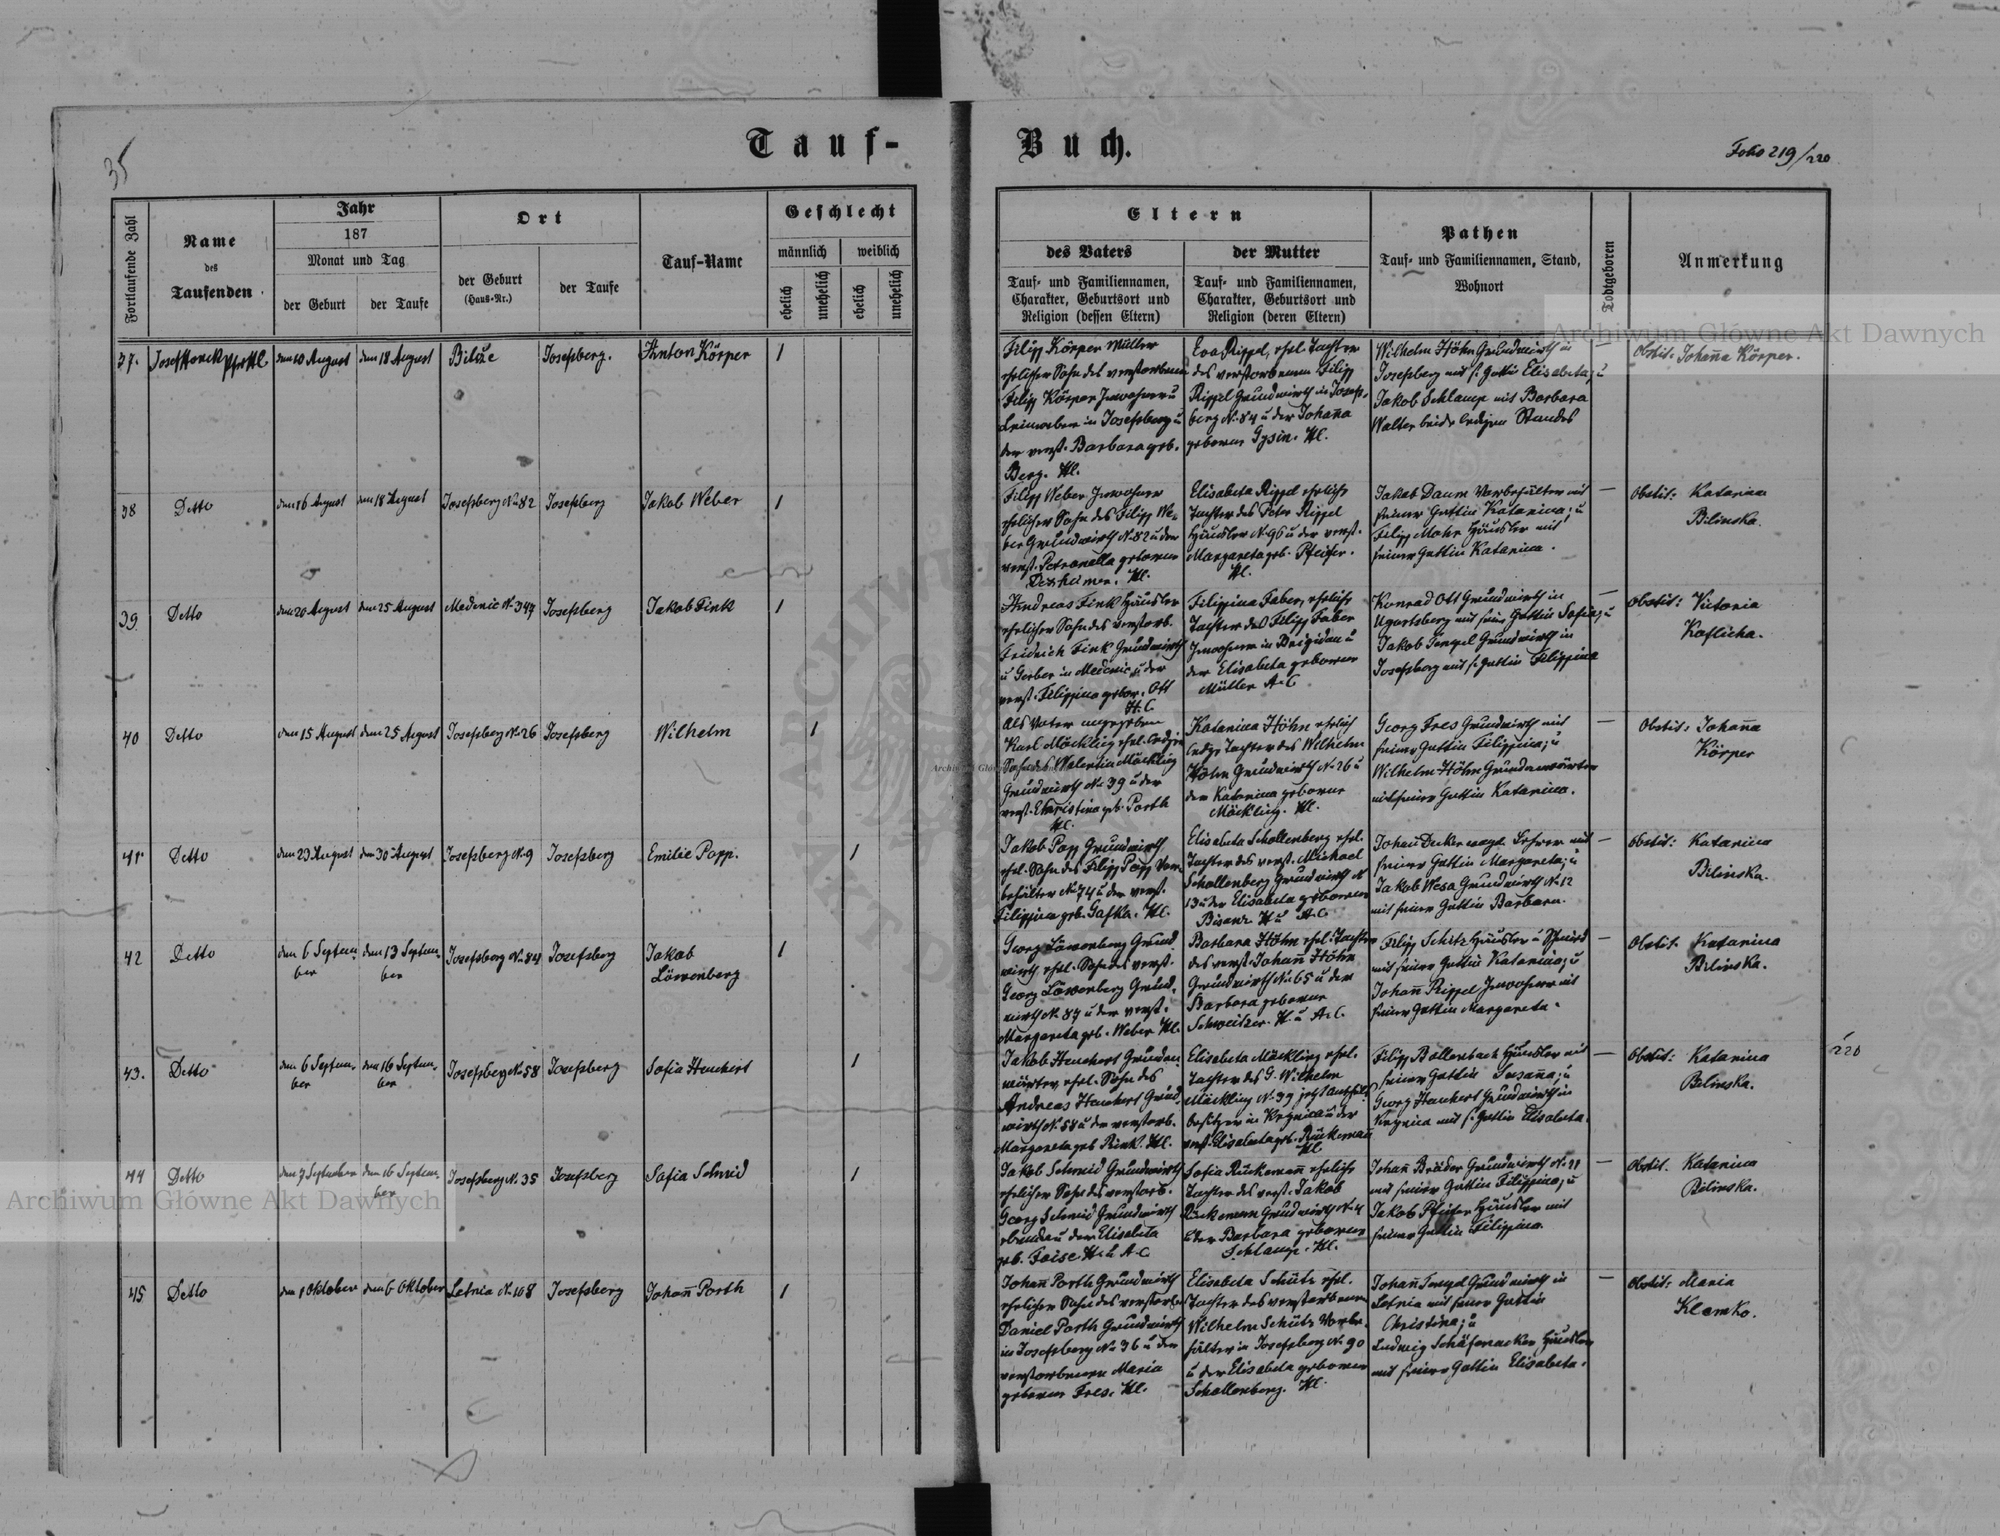 35
Tauf-
Buch.
Folio 219/220
Fortlaufende Zahl
Name
des
Taufenden
Jahr
187
Monat und Tag
der Geburt
der Taufe
Ort
der Geburt
(Haus-Nr.)
der Taufe
Tauf-Name
Geschlecht
männlich
weiblich
ehelich
unehelich
ehelich
unehelich
Eltern
des Vaters
Tauf- und Familiennamen,
Charakter, Geburtsort und
Religion (dessen Eltern)
der Mutter
Tauf- und Familiennamen,
Charakter, Geburtsort und
Religion (deren Eltern)
Pathen
Tauf- und Familiennamen, Stand,
Wohnort
Todtgeboren
Anmerkung
37.
den 10 August
den 18 August
Josefsberg.
Anton Körper
1
Filipp Körper Müller
ehelicher Sohn des verstorbenen
Filipp Körper Inwohner u
Leinweber in Josefsberg u
der verst. Barbara geb.
Berg. Hl.
Eva Rippel, ehel. Tochter
des verstorbenen Filipp
Rippel Grundwirth in Josefs-
berg N. 84 u der Johanna
geborene Gysin. Hl.
Wilhelm Höhn Grundwirth in
Josefsberg mit s. Gattin Elisabeta; u
Jakob Schlamp mit Barbara
Walter beide ledigen Standes
—
Obstit. Johanna Körper.
38
Detto
den 16 August
den 18 August
Josefsberg N. 82
Josefsberg
Jakob Weber
1
Filipp Weber Inwohner
ehelicher Sohn des Filipp We-
ber Grundwirth N. 82 u der
verst. Petronella geborene
Hl.
Elisabeta Rippel eheliche
Tochter des Peter Rippel
Häusler N. 96 u der verst.
Margareta geb. Pfeifer.
Hl.
Jakob Daum Vorbehälter mit
seiner Gattin Katarina; u
Filipp Mohr Häusler mit
seiner Gattin Katarina.
—
Obstit: Katarina
Bilinska.
39
Detto
den 20 August
den 25 August
Medenic N. 347
Josefsberg
Jakob Fink
1
Andreas Fink Häusler
ehelicher Sohn des verstorb.
Fridrich Fink Grundwirth
u Gerber in Medenic u der
verst. Filippina gebor. Ott
H.C.
Filippina Faber, eheliche
Tochter des Filipp Faber
Inwohner in Brigidau u
der Elisabeta geborene
Müller A.C.
Konrad Ott Grundwirth in
Ugartsberg mit seiner Gattin Sofia; u
Jakob Tempel Grundwirth in
Josefsberg mit s. Gattin Filippina
—
Obstit: Victoria
40
Detto
den 15 August
den 25 August
Josefsberg N. 26
Josefsberg
Wilhelm
1
Als Vater angegeben
Karl Möckling ehel. ledige
Sohn des Valentin Möckling
Grundwirth N. 39 u der
verst. Christina geb. Porth
Hl.
Katarina Höhn ehelich
ledige Tochter des Wilhelm
Höhn Grundwirth N. 26 u
der Katarina geborene
Möckling. Hl.
Georg Fres Grundwirth mit
seiner Gattin Filippina; u
Wilhelm Höhn Grundanwärter
mit seiner Gattin Katarina.
—
Obstit: Johanna
Körper
41
Detto
den 23 August
den 30 August
Josefsberg N. 9
Josefsberg
Emilie Popp.
1
Jakob Popp Grundwirth
ehel. Sohn des Filipp Popp Vor-
behälter N. 74 u der verst.
Filippina geb. Gafka. Hl.
Elisabeta Schollenberg ehel.
Tochter des verst. Michael
Schollenberg Grundwirth N
13 u der Elisabeta geborene
Bisanz H u A.C.
Johan Decker evagl Lehrer mit
seiner Gattin Margareta; u
Jakob Wesa Grundwirth N. 12
mit seiner Gattin Barbara.
—
Obstit: Katarina
Bilinska.
42
Detto
den 6 Septem-
ber
den 13 Septem-
ber
Josefsberg N. 84
Josefsberg
Jakob
Löwenberg
1
Georg Löwenberg Grund
wirth ehel. Sohn des verst.
Georg Löwenberg Grund-
wirth N. 87 u der verst.
Margareta geb. Weber Hl.
Barbara Höhn ehel. Tochter
des verst. Johann Höhn
Grundwirth N. 65 u der
Barbara geborene
Schweitzer. H. u A.C.
Filipp Schitz Häusler u Schmied
mit seiner Gattin Katarina; u
Johann Rippel Inwohner mit
seiner Gattin Margareta.
—
Obstit. Katarina
Bilinska.
43.
Detto
den 6 Septem-
ber
den 16 Septem-
ber
Josefsberg N. 58
Josefsberg
Sofia Heuchert
1
Jakob Heuchert Grundan-
wärter, ehel. Sohn des
Andreas Heuchert Grund-
wirth N. 58 u der verstorb.
Margareta geb Rink. Hl.
Elisabeta Möckling ehel.
Tochter des G. Wilhelm
Möckling N. 39 jetzt
besitzer in Krynica u der
verst. Elisabeta geb. Rückemann
Hl
Filipp Bollenbach Häusler mit
seiner Gattin Susanna; u
Georg Heuchert Grundwirth in
Krynica mit s. Gattin Elisabeta.
—
Obstit: Katarina
Bilinska.
220
44
Detto
den 7 September
den 16 Septem-
ber
Josefsberg N. 35
Josefsberg
Sofia Schmid
1
Jakob Schmid Grundwirth
ehelicher Sohn des verstorb.
Georg Schmid Grundwirth
ebenda u der Elisabeta
geb. Faise H. u A.C
Sofia Rückemann eheliche
Tochter des verst. Jakob
Rückemann Grundwirth N. 4
u der Barbara geborene
Schlamp. Hl.
Johann Bräder Grundwirth
mit seiner Gattin Filippina; u
Jakob Pfeifer Häusler mit
seiner Gattin Filippina.
—
Obstit. Katarina
Bilinska.
45
Detto
den 1 Oktober
den 6 Oktober
Letnia N. 108
Josefsberg
Johann Porth
1
Johann Porth Grundwirth
ehelicher Sohn des verstorb
Daniel Porth Grundwirth
in Josefsberg N. 36 u der
verstorbenen Maria
geborene Fres. Hl.
Elisabeta Schütz ehel.
Tochter des verstorbenen
Wilhelm Schütz Vorbe-
hälter in Josefsberg N. 90
u der Elisabeta geborene
Schollenberg. Hl.
Johann Tempel Grundwirth in
Letnia mit seiner Gattin
Christina; u
Ludwig Schäfenacker Häusler
mit seiner Gattin Elisabeta.
—
Obstit: Maria
Klemko.
Archiwum Główne Akt Dawnych
Archiwum Główne Akt Dawnych